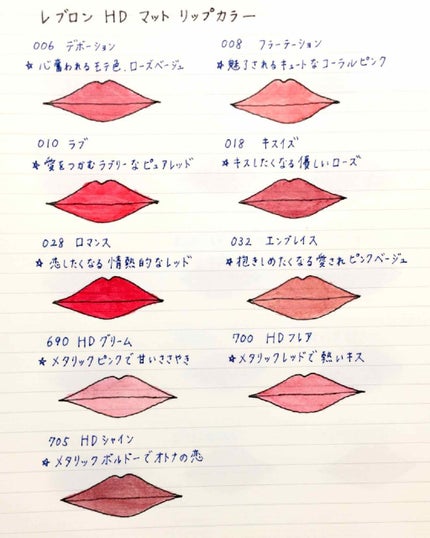 レブロン HD マット リップカラー
006 デボーション
☆ 心奪われるモテ色、ローズベージュ
008 フラーテーション
☆ 魅了されるキュートなコーラルピンク
010 ラブ
☆ 愛をつかむラブリーなピュアレッド
018 キスイズ
☆ キスしたくなる優しいローズ
028 ロマンス
☆ 恋したくなる情熱的なレッド
032 エンブレイス
☆ 抱きしめたくなる愛されピンクベージュ
690 HDグリーム
☆ メタリックピンクで甘いささやき
700 HDフレア
☆ メタリックレッドで熱いキス
705 HDシャイン
☆ メタリックボルドーでオトナの恋